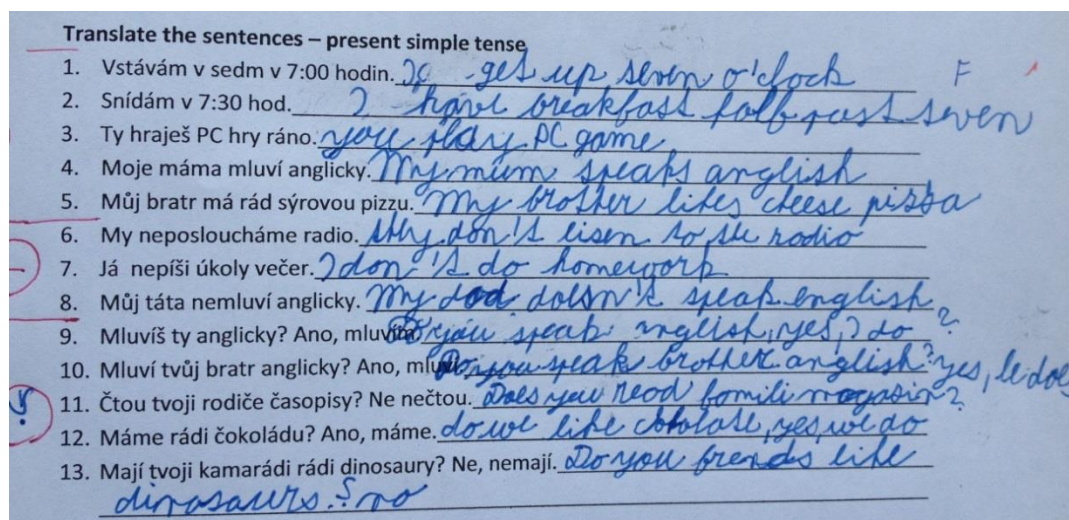 Translate the sentences – present simple tense
1. Vstávám v sedm v 7:00 hodin. get up seven o'clock F
2. Snídám v 7:30 hod. I have breakfast half past seven
3. Ty hraješ PC hry ráno. you play PC game
4. Moje máma mluví anglicky. My mum speaks anglish
5. Můj bratr má rád sýrovou pizzu. My brother likes cheese pizza
6. My neposloucháme radio. don't lisen to the radio
7. Já nepíši úkoly večer. I don't do homework
8. Můj táta nemluví anglicky. My dad doesn't speak english
9. Mluvíš ty anglicky? Ano, mluvím Do you speak anglish, yes, I do ?
10. Mluví tvůj bratr anglicky? Ano, Do you speak brother anglish? yes, he does
11. Čtou tvoji rodiče časopisy? Ne nečtou. Does you read fomili magasin?
12. Máme rádi čokoládu? Ano, máme. do we like yes, we do
13. Mají tvoji kamarádi rádi dinosaury? Ne, nemají. Do you frends like
dinosaurs? no